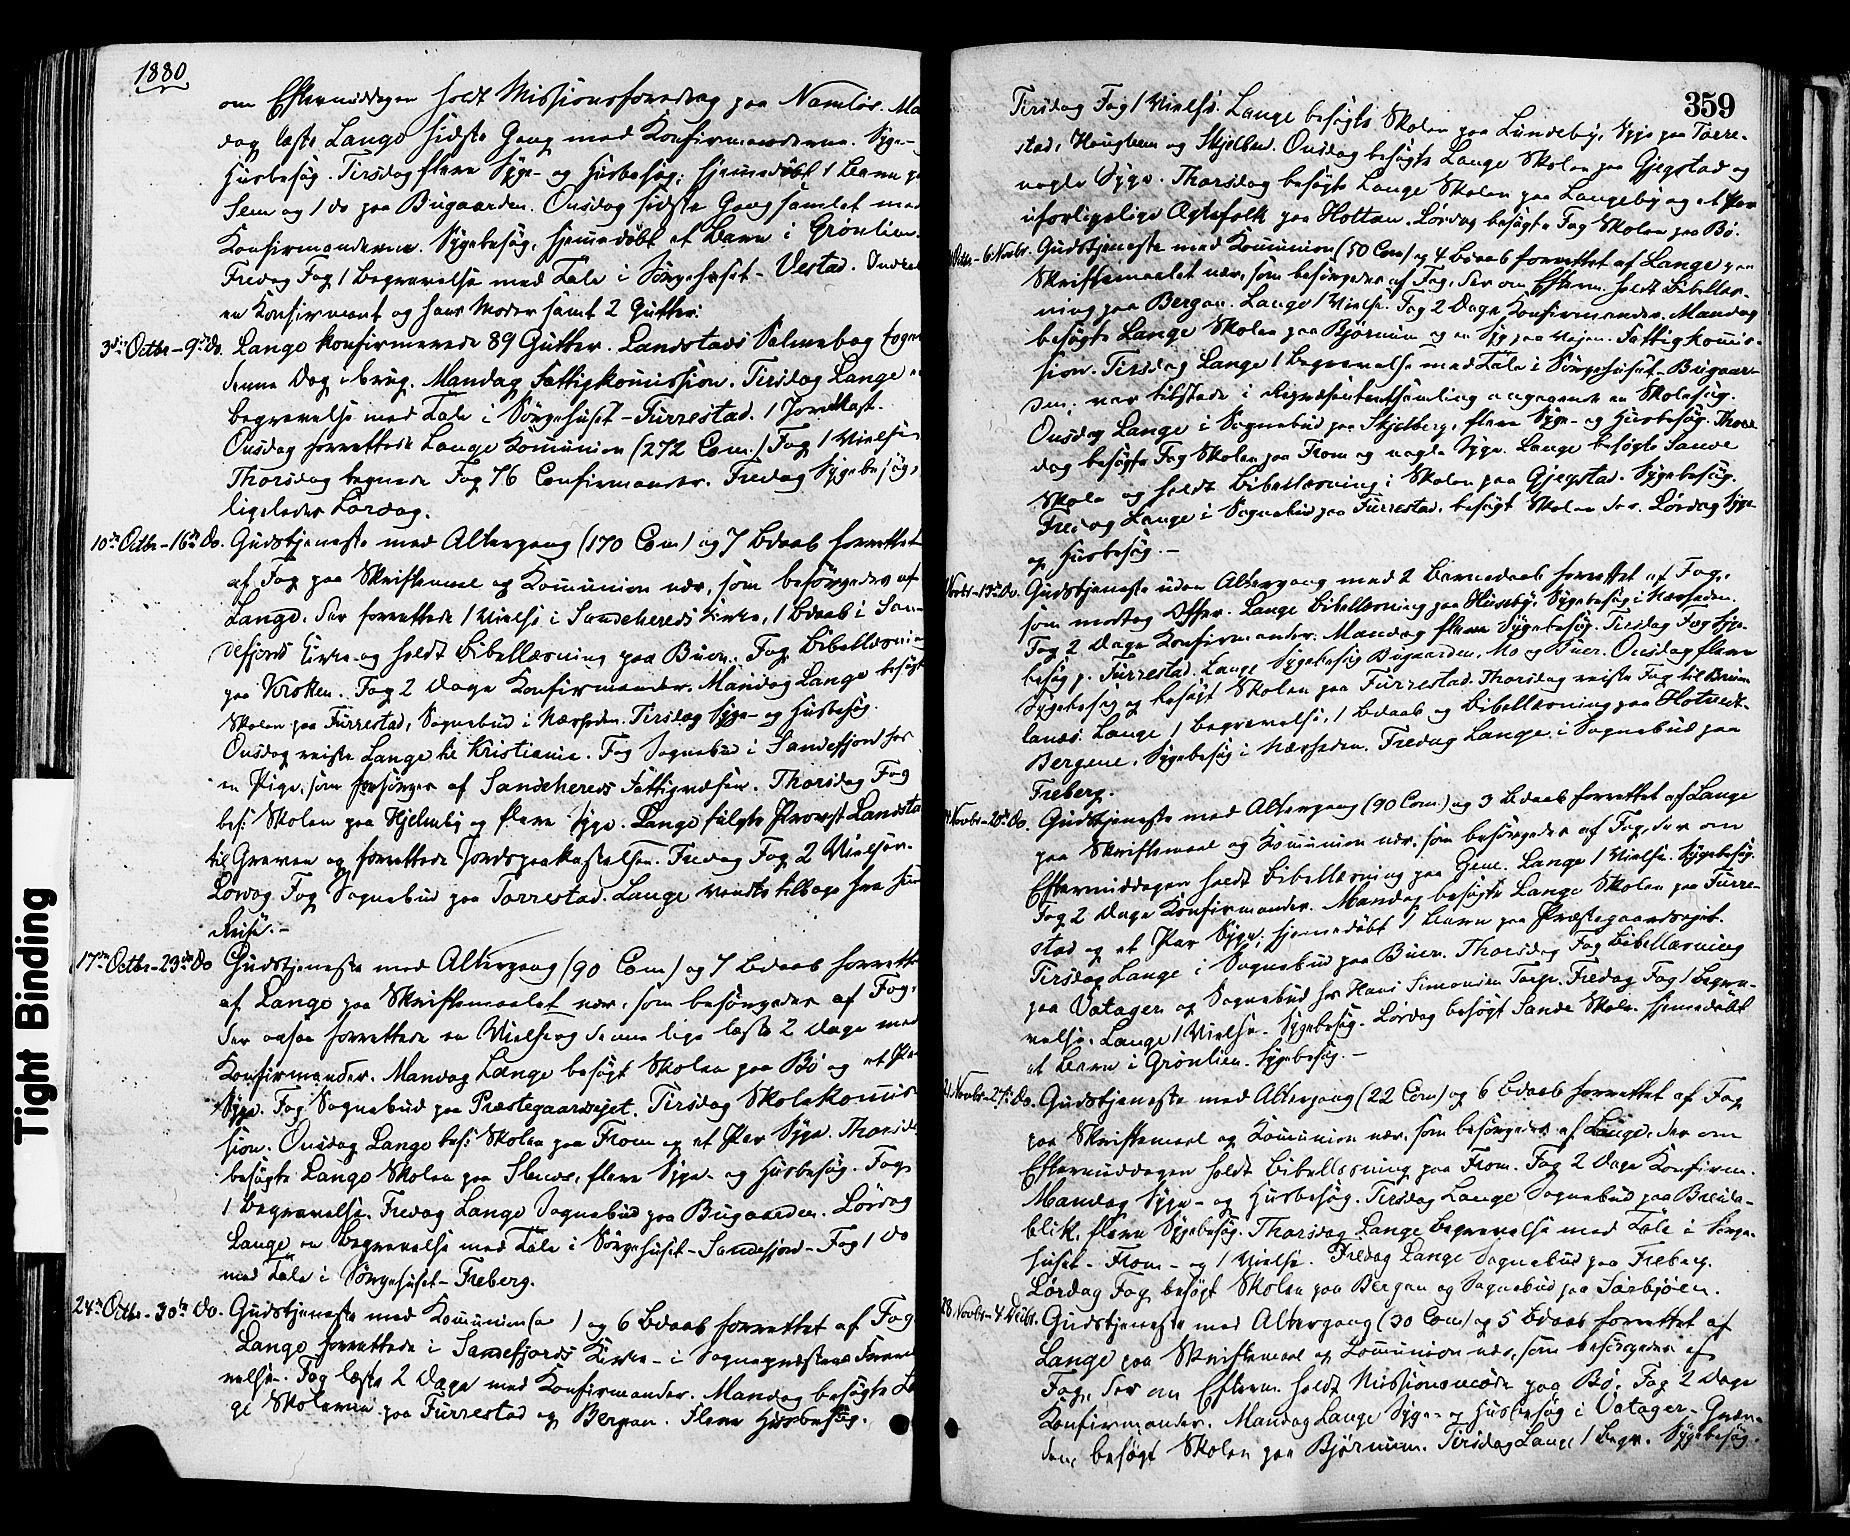 1880
om Eftermiddagen holdt Missionsforedrag paa Namløs. Ma
dag læste Lange sidste Gang med Konfirmanderne. Syge-
Husbesøg. Tirsdag flere Syge- og Husbesøg; hjemmedøbt 1 Barn p
Sem og 1 do paa Bugaarden. Onsdag sidste Gang samlet med
Konfirmanderne. Sygebesøg, hjemmedøbt et Barn i Grønlien.
Fredag Fog 1 Begravelse med Tale i Sørgehuset - Vestad.
en Konfirmant og hans Moder samt 2 Gutter.
3die Octbr - 9de Do. Lange konfirmerede 89 Gutter. Landstads Salmebog toges
denne Dag i brug. Mandag Fattigkommission. Tirsdag Lange
begravelse med Tale i Sørgehuset - Furrestad. 1 Jordkast.
Onsdag forrettede Lange Kommunion (272 Com.) Fog 1 Vielse
Thorsdag begynte Fog 76 Confirmander. Fredag Sygebesøg,
ligeledes Lørdag.
10de Octbr - 16de Do. Gudstjeneste med Altergang (170 Com) og 7 Bdaab forrettet
af Fog paa Skriftemaal og Kommunion nær, som besørgedes af
Lange. Der forrettede 1 Vielse i Sandehereds Kirke, 1 Bdaab i San-
defjords Kirke og holdt Bibellæsning paa Buer. Fog Bibellæsning
paa Kroken. Fog 2 Dage Konfirmander. Mandag Lange besøgt
Skolen paa Furrestad, Sognebud i Nærheden. Tirsdag Syge- og Husbesøg.
Onsdag reiste Lange til Kristiania. Fog Sognebud i Sandefjord hos
en Pige, som forsørges af Sandehereds Fattigvæsen. Thorsdag Fog
bes. Skolen paa Hjelmby og flere Syge. Lange fulgte Provst Landsta
til Graven og forrettede Jordspaakastelsen. Fredag Fog 2 Vielser.
Lørdag Fog Sognebud paa Torrestad. Lange vendte tilbage fra sin
Reise. -
17de Octbr - 23de Do Gudstjeneste med Altergang (90 Com) og 7 Bdaab forrettet
af Lange paa Skriftemaalet nær, som besørgedes af Fog,
der ogsaa forrettede en Vielse og læste 2 Dage med
Konfirmander. Mandag Lange besøgt Skolen paa Bø og et Par
Syge. Fog Sognebud paa Præstegaardsejet. Tirsdag Skolekommis
sion. Onsdag Lange bes. Skolen paa From og et Par Syge. Thorsd
besøgte Lange Skolen paa Skuis, flere Syge- og Husbesøg. Fog
1 Begravelse. Fredag Lange Sognebud paa Bugaarden. Lørdag
Lange en Begravelse med Tale i Sørgehuset - Sandefjord - Fog 1 Do
med Tale i Sørgehuset - Freberg.
24de Octbr - 30te Do. Gudstjeneste med Kommunion og 6 Bdaab forrettet af Fog
Lange forrettede i Sandefjords Kirke - i Sognepræstens
Fog læste 2 Dage med Konfirmander. Mandag besøgte La
ge Skolerne paa Furrestad og Bergan. Flere Husbesøg.
359
Tirsdag Fog 1 Vielse. Lange besøgte Skolen paa Lundeby, Syge paa Torre-
stad, Haugtuen og Skjelbred. Onsdag besøgte Lange Skolen paa Gjegstad og
nogle Syge. Thorsdag besøgte Lange Skolen paa Langeby og et Par
uforligelige Ægtefolk paa Hottan. Lørdag besøgte Fog Skolen paa Bø.
- 6 Novbr. Gudstjeneste med Kommunion (50 Com) og 4 Bdaab forrettet af Lange paa
Skriftemaalet nær, som besørgedes af Fog, der om Efterm. holdt Bibellæs-
ning paa Bergan. Lange 1 Vielse. Fog 2 Dage Konfirmander. Mandag
besøgte Lange Skolen paa Bjørnum og en Syg paa Vejen. Fattigkommis-
sion. Tirsdag Lange 1 Begravelse med Tale i Sørgehuset - Bugaar-
den; var tilstede i Repræsentantsamling angaaende en Skolesag.
Onsdag Lange i Sognebud paa Skjelberg, flere Syge- og Husbesøg. Thors
dag besøgte Fog Skolen paa From og nogle Syge. Lange besøgte Sande
Skole og holdt Bibellæsning i Skolen paa Gjegstad. Sygebesøg.
Fredag Lange i Sognebud paa Furrestad, besøgt Skolen der. Lørdag Syge-
og Husbesøg. -
Novbr - 13de Do. Gudstjeneste uden Altergang med 2 Barnedaab forrettet af Fog,
som modtog Offer. Lange Bibellæsning paa Huseby, Sygebesøg i Nærheden.
Fog 2 Dage Konfirmander. Mandag flere Sygebesøg. Tirsdag Fog Syge-
besøg p. Furrestad. Lange Sygebesøg Bugaarden, Mo og Fuer. Onsdag flere
Sygebesøg og besøgt Skolen paa Furrestad. Thorsdag reiste Fog til
Lange 1 Begravelse, 1 Bdaab og Bibellæsning paa Hotvedt-
Bergene, Sygebesøg i Nærheden. Fredag Lange i Sognebud paa
Freberg.
Novbr - 20de Do. Gudstjeneste med Altergang (90 Com.) og 3 Bdaab forrettet af Lange
paa Skriftemaal og Kommunion nær, som besørgedes af Fog, der om
Eftermiddagen holdt Bibellæsning paa Gene. Lange 1 Vielse. Sygebesøg.
Fog 2 Dage Konfirmander. Mandag besøgte Lange Skolen paa Furre-
stad og et Par Syge; hjemmedøbt 1 Barn paa Præstegaardsejet.
Tirsdag Lange i Sognebud paa Buer. Thorsdag Fog Bibellæsning
paa Vatager og Sognebud hos Hans Simonsen Torp. Fredag Fog 1 Begra-
velse. Lange 1 Vielse - Sygebesøg. Lørdag besøgt Sande Skole. Hjemmedøbt
et Barn i Grønlien. Sygebesøg. -
21 Novbr - 27de Do. Gudstjeneste med Altergang (22 Com) og 6 Bdaab forrettet af Fog
paa Skriftemaal og Kommunion nær, som besørgedes af Lange, der om
Eftermiddagen holdt Bibellæsning paa From. Fog 2 Dage Konfirm.
Mandag Syge- og Husbesøg. Tirsdag Lange Sognebud paa Breida-
blik, flere Sygebesøg. Thorsdag Lange Begravelse med Tale i Sørge-
huset - From - og 1 Vielse. Fredag Lange Sognebud paa Freberg.
Lørdag Fog besøgt Skolen paa Bergan og Sognebud paa Sørbyøen.
28 Novbr - 4 Decbr. Gudstjeneste med Altergang (30 Com) og 5 Bdaab forrettet af
Lange paa Skriftemaal og Kommunion nær, som besørgedes af
Fog, der om Efterm. holdt Missionsmøde paa Bø. Fog 2 Dage
Konfirmander. Mandag Lange Syge- og Husbesøg i Vatager-
besøgt Skolen paa Bjørnum. Tirsdag Lange 1 Begr. Sygebesøg.
Tight Binding